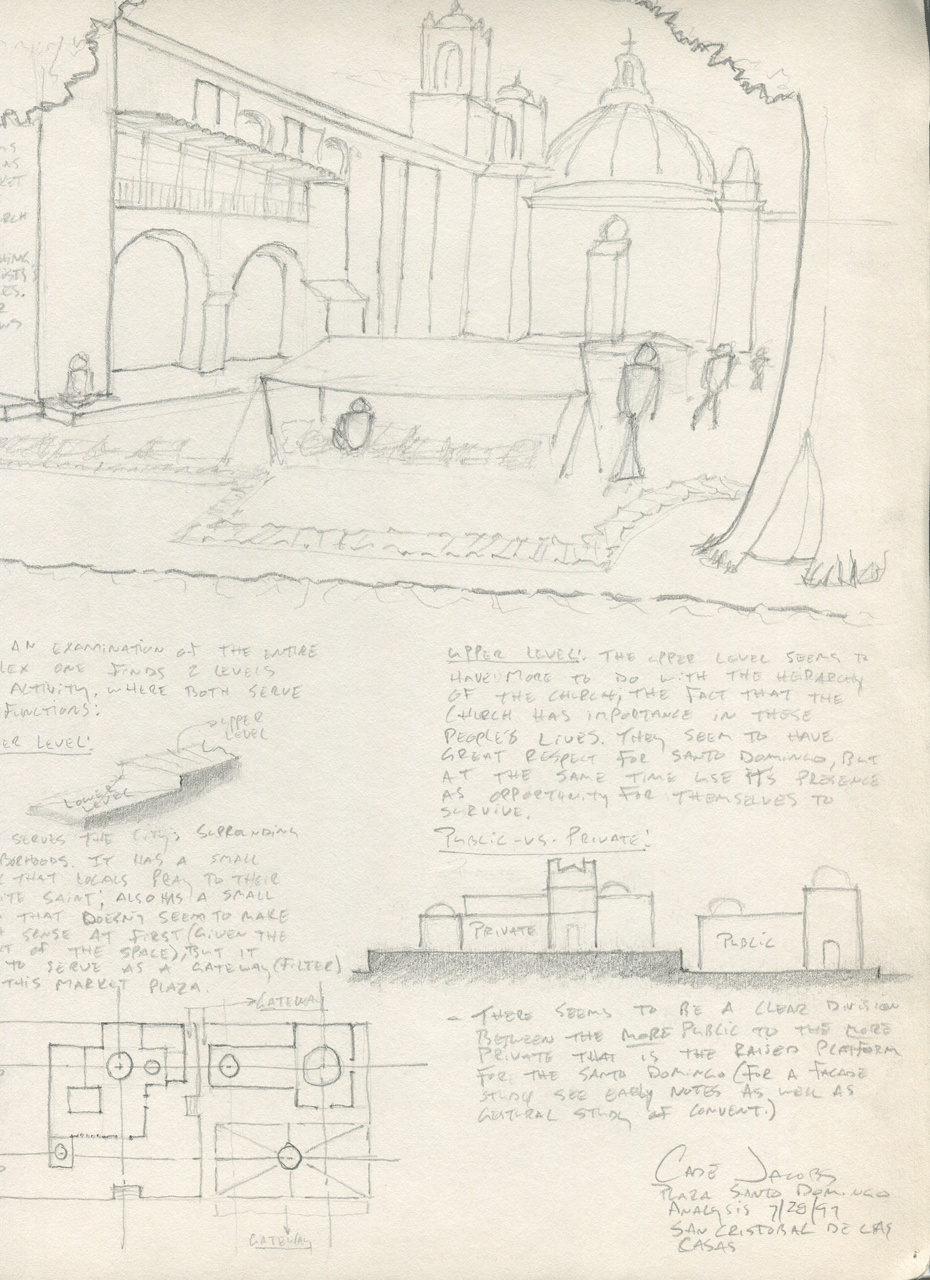 MS
AS
KET
RCH
KING
ISTS
ES.
R
WS
AN EXAMINATION OF THE ENTIRE
LEX ONE FINDS 2 LEVELS
ACTIVITY, WHERE BOTH SERVE
FUNCTIONS:
ER LEVEL:
UPPER
LEVEL
LOWER
LEVEL
SERVES THE CITY'S SURROUNDING
BORHOODS. IT HAS A SMALL
THAT LOCALS PRAY TO THEIR
ITE SAINT; ALSO HAS A SMALL
THAT DOESN'T SEEM TO MAKE
SENSE AT FIRST (GIVEN THE
T OF THE SPACE), BUT IT
TO SERVE AS A GATEWAY (FILTER)
THIS MARKET PLAZA.
GATEWAY
GATEWAY
UPPER LEVEL: THE UPPER LEVEL SEEMS TO
HAVE MORE TO DO WITH THE HEIRARCHY
OF THE CHURCH; THE FACT THAT THE
CHURCH HAS IMPORTANCE IN THESE
PEOPLE'S LIVES. THEY SEEM TO HAVE
GREAT RESPECT FOR SANTO DOMINGO, BUT
AT THE SAME TIME USE ITS PRESENCE
AS OPPORTUNITY FOR THEMSELVES TO
SURVIVE.
PUBLIC -VS- PRIVATE:
PRIVATE
PUBLIC
- THERE SEEMS TO BE A CLEAR DIVISION
BETWEEN THE MORE PUBLIC TO THE MORE
PRIVATE THAT IS THE RAISED PLATFORM
FOR THE SANTO DOMINGO (FOR A FACADE
STUDY SEE EARLY NOTES AS WELL AS
GESTURAL STUDY OF CONVENT.)
CADE JACOBS
PLAZA SANTO DOMINGO
ANALYSIS 7/28/97
SAN CRISTOBAL DE LAS
CASAS